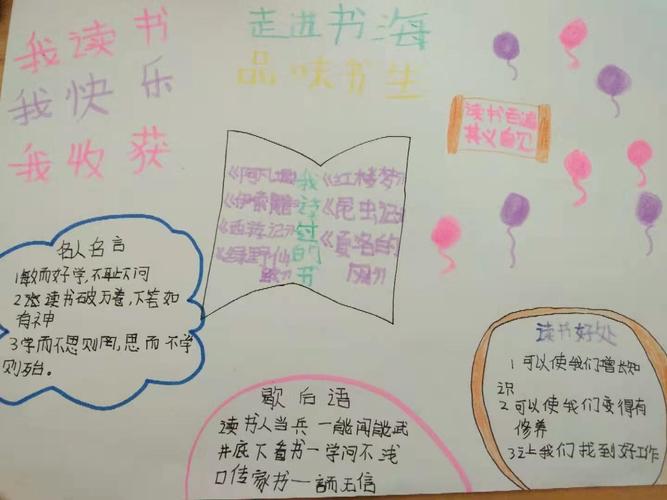 我读书
我快乐
我收获
走进书海
品味书生
读书百遍
其义自见
《阿凡提》
《伊索寓言》
《西游记》
《绿野仙
踪》
我读过的书
《红楼梦》
《昆虫记》
《夏洛的
网》
名人名言
1敏而好学,不耻不问
2读书破万卷,下笔如
有神
3学而不思则罔,思而不学
则殆.
歇后语
读书人当兵一能闻能武
井底下看书一学问不浅
口传家书一言而无信
读书好处
1 可以使我们增长知
识
2 可以使我们变得有
修养
3让我们找到好工作